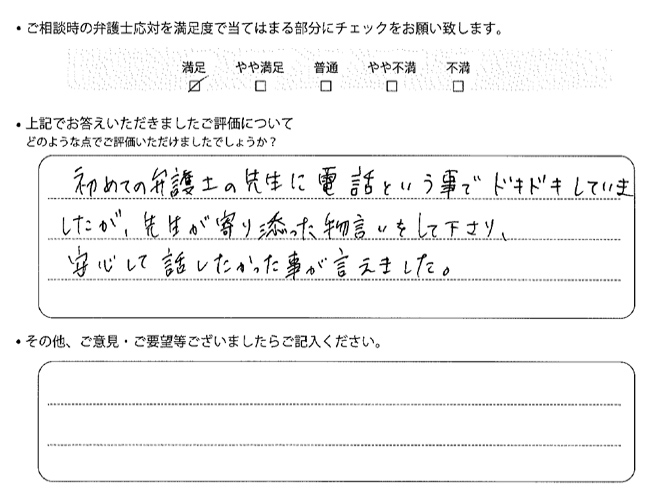 ・ご相談時の弁護士応対を満足度で当てはまる部分にチェックをお願い致します。
満足 やや満足 普通 やや不満 不満
☑ □ □ □ □
・上記でお答えいただきましたご評価について
どのような点でご評価いただけましたでしょうか？
初めての弁護士の先生に電話という事でドキドキしていま
したが、先生が寄り添った物言いをして下さり、
安心して話したかった事が言えました。
・その他、ご意見・ご要望等ございましたらご記入ください。